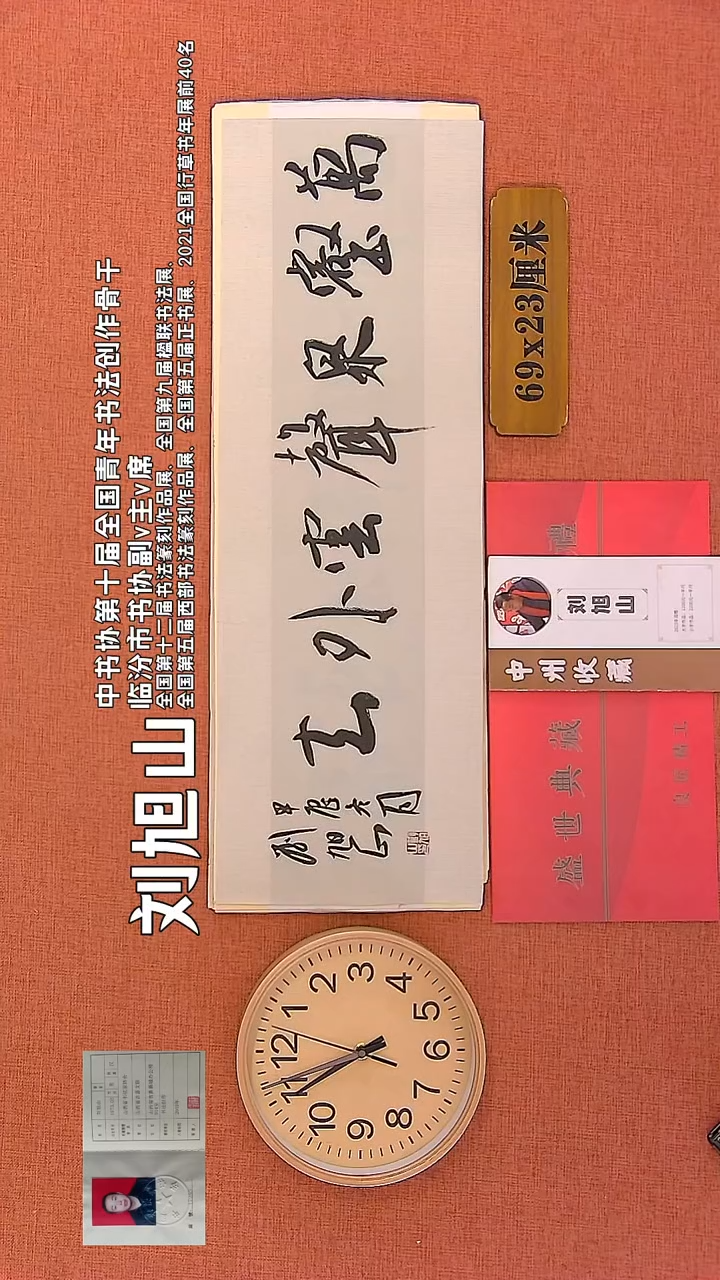 中书协第十届全国青年书法创作骨干
临汾市书协副v主v席
全国第十二届书法篆刻作品展、全国第九届楹联书法展、
全国第五届西部书法篆刻作品展、全国第五届正书展、2021全国行草书年展前40名
刘旭山
萬壑泉聲雲外去
甲辰六月
劉旭山
69x23厘米
刘旭山
中州收藏
盛世典藏
禮
12
1
2
3
4
5
6
7
8
9
10
11